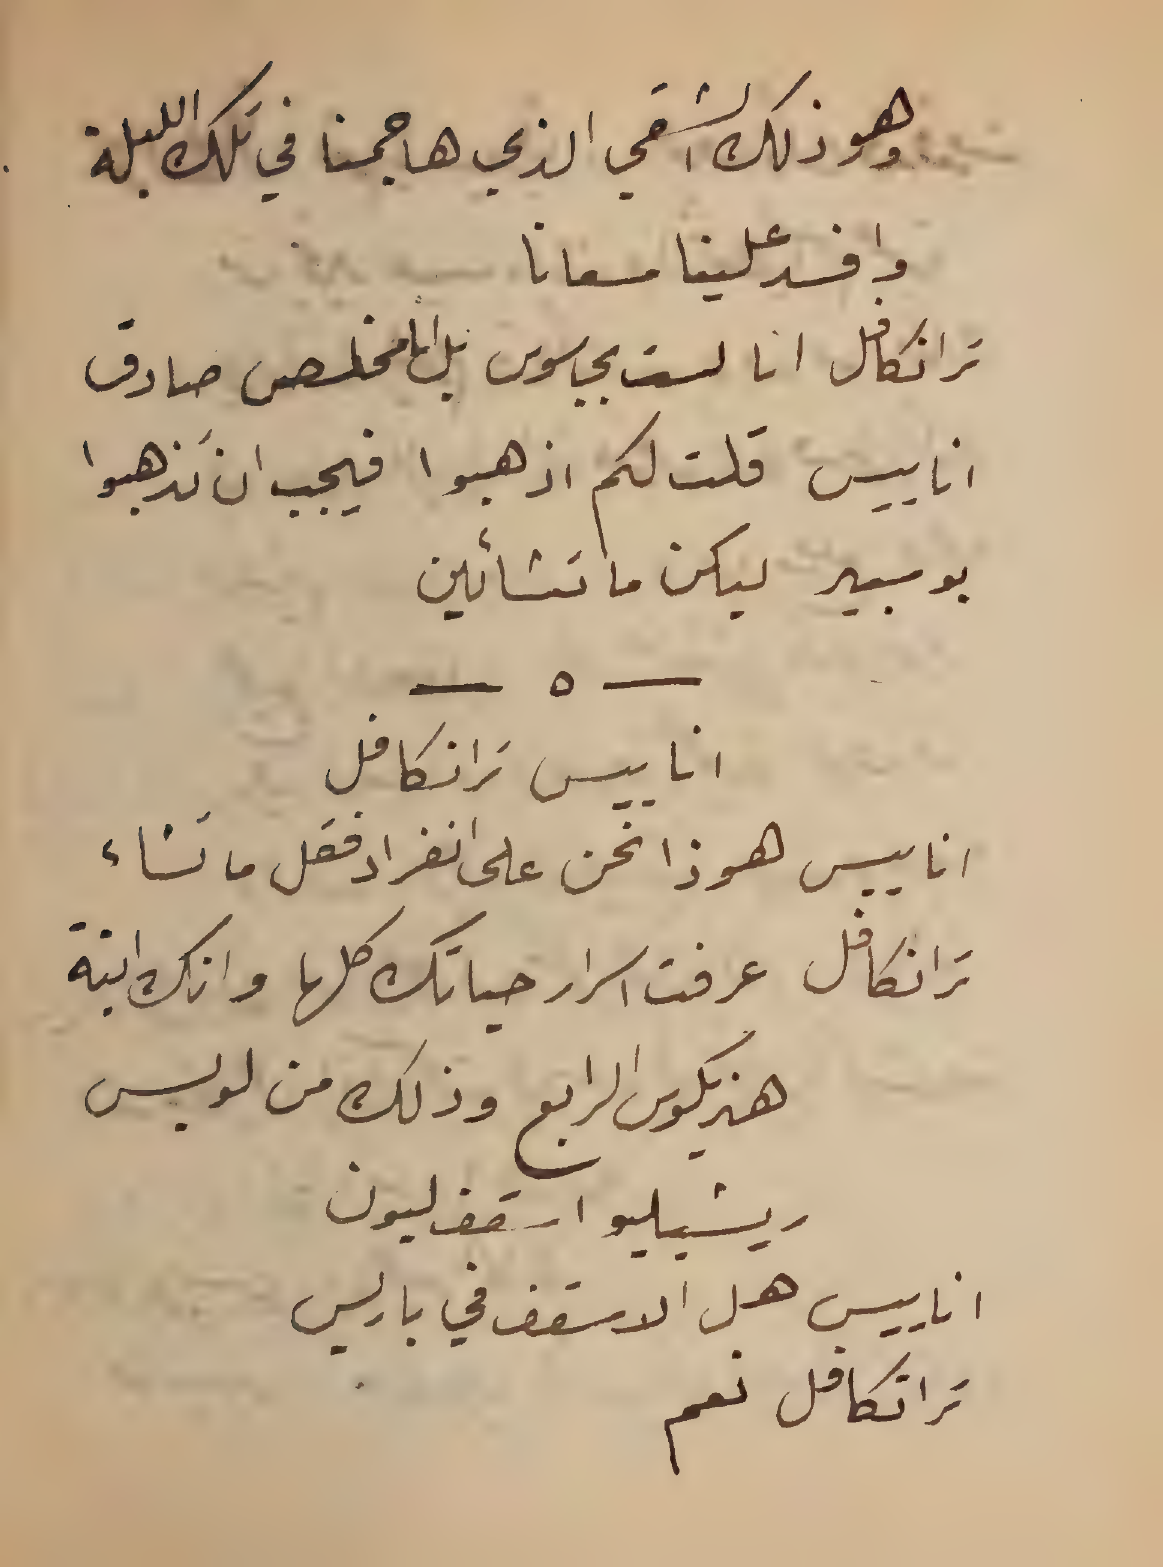 وهو ذلك الشقي الذي هاجمنا في تلك الليلة
وافسد علينا مسعانا
ترانكافل انا لست بجاسوس بل انا مخلص صادق
اناييس قلت لكم اذهبوا فيجب ان تذهبوا
بوسيير ليكن ما تشائين
— ٥ —
اناييس ترانكافل
اناييس هوذا نحن على انفراد فقل ما تشاء
ترانكافل عرفت اسرار حياتك كلها وانك ابنة
هنريكوس الرابع وذلك من لويس
ريشيليو اسقف ليون
اناييس هل الاسقف في باريس
ترانكافل نعم